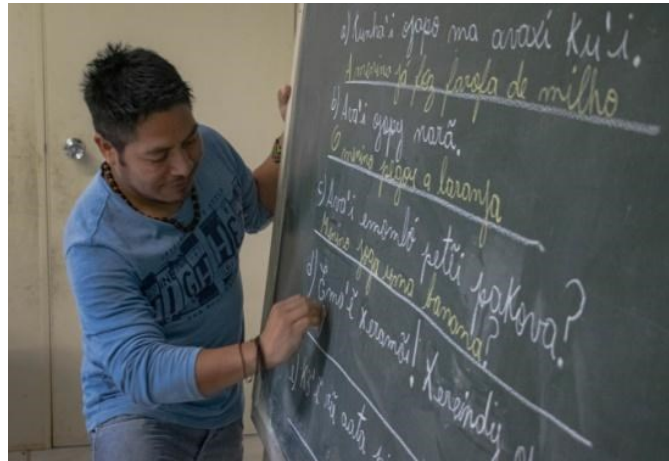 a) Kunha'i ojapo ma avaxi Ku'i.
A menina já fez farofa de milho
b) Ava'i ojopy narã.
O menino pegou a laranja
c) Ava'i emombó peteĩ pakova?
Menino joga uma banana?
d) Emo'ĩ Xeramõi! Xereindy
HIGH